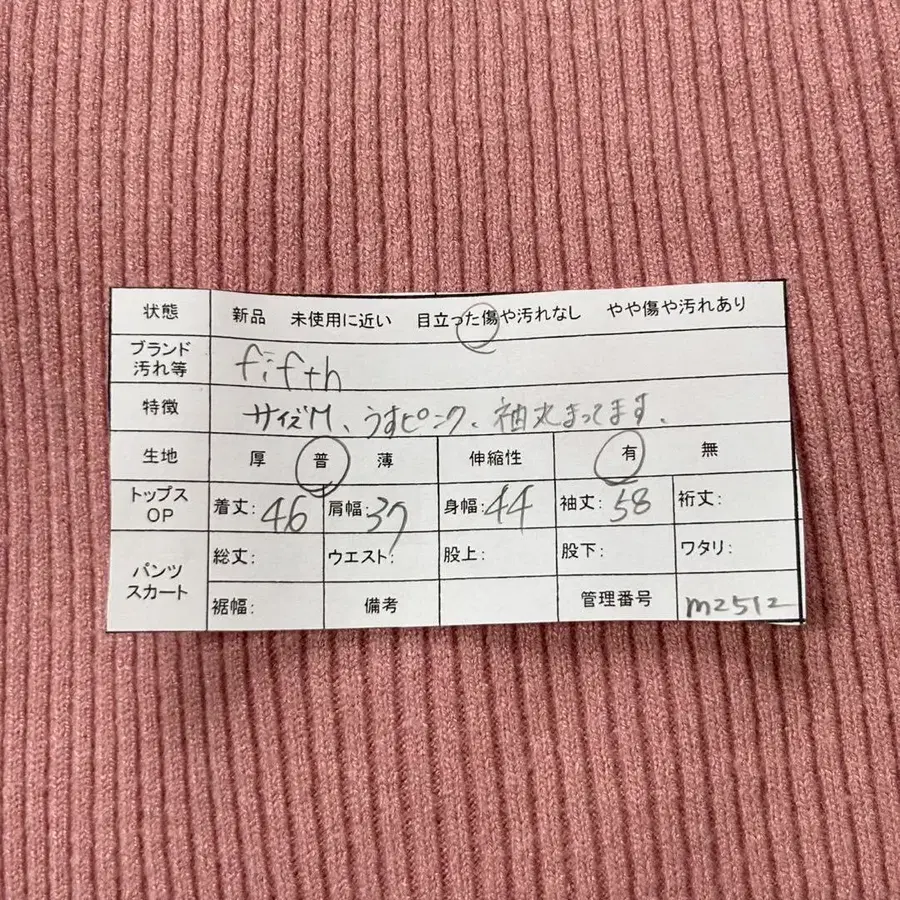 状態 新品 未使用に近い 目立った傷や汚れなし やや傷や汚れあり
ブランド
汚れ等 fifth
特徴 サイズM、うすピンク、袖丸まってます。
生地 厚 普 薄 伸縮性 有 無
トップス
OP 着丈:46 肩幅:37 身幅:44 袖丈:58 裄丈:
パンツ
スカート 総丈: ウエスト: 股上: 股下: ワタリ:
裾幅: 備考 管理番号 m2512